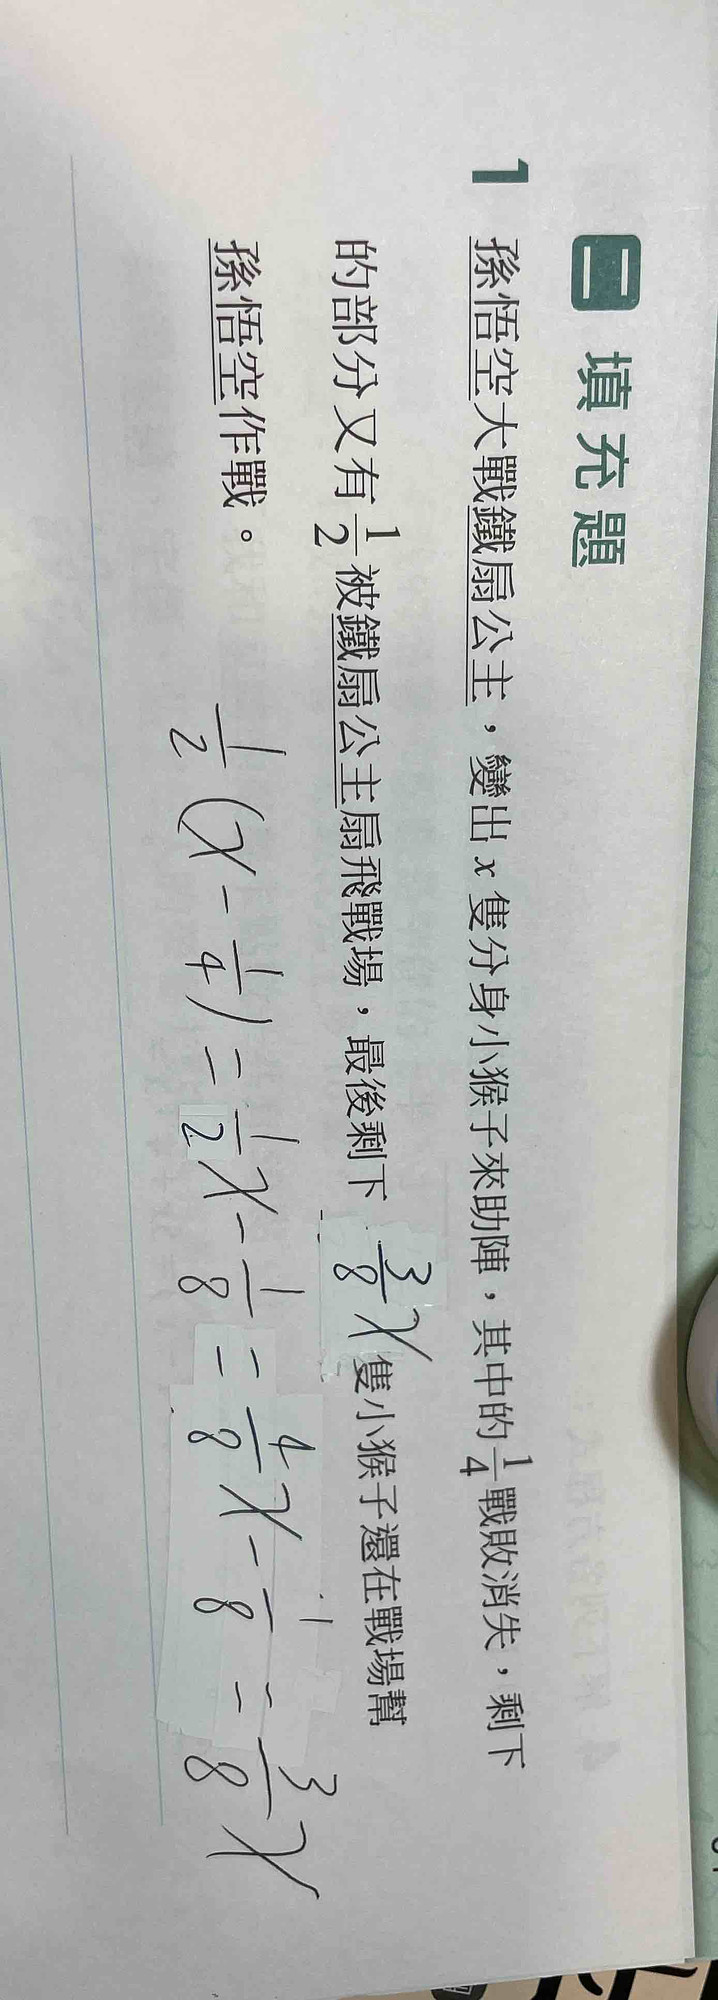 二 填充題
1 孫悟空大戰鐵扇公主，變出 x 隻分身小猴子來助陣，其中的 1/4 戰敗消失，剩下
的部分又有 1/2 被鐵扇公主扇飛戰場，最後剩下 3/8 x 隻小猴子還在戰場幫
孫悟空作戰。
1/2 (x - 1/4) = 1/2 x - 1/8 = 4/8 x - 1/8 = 3/8 x